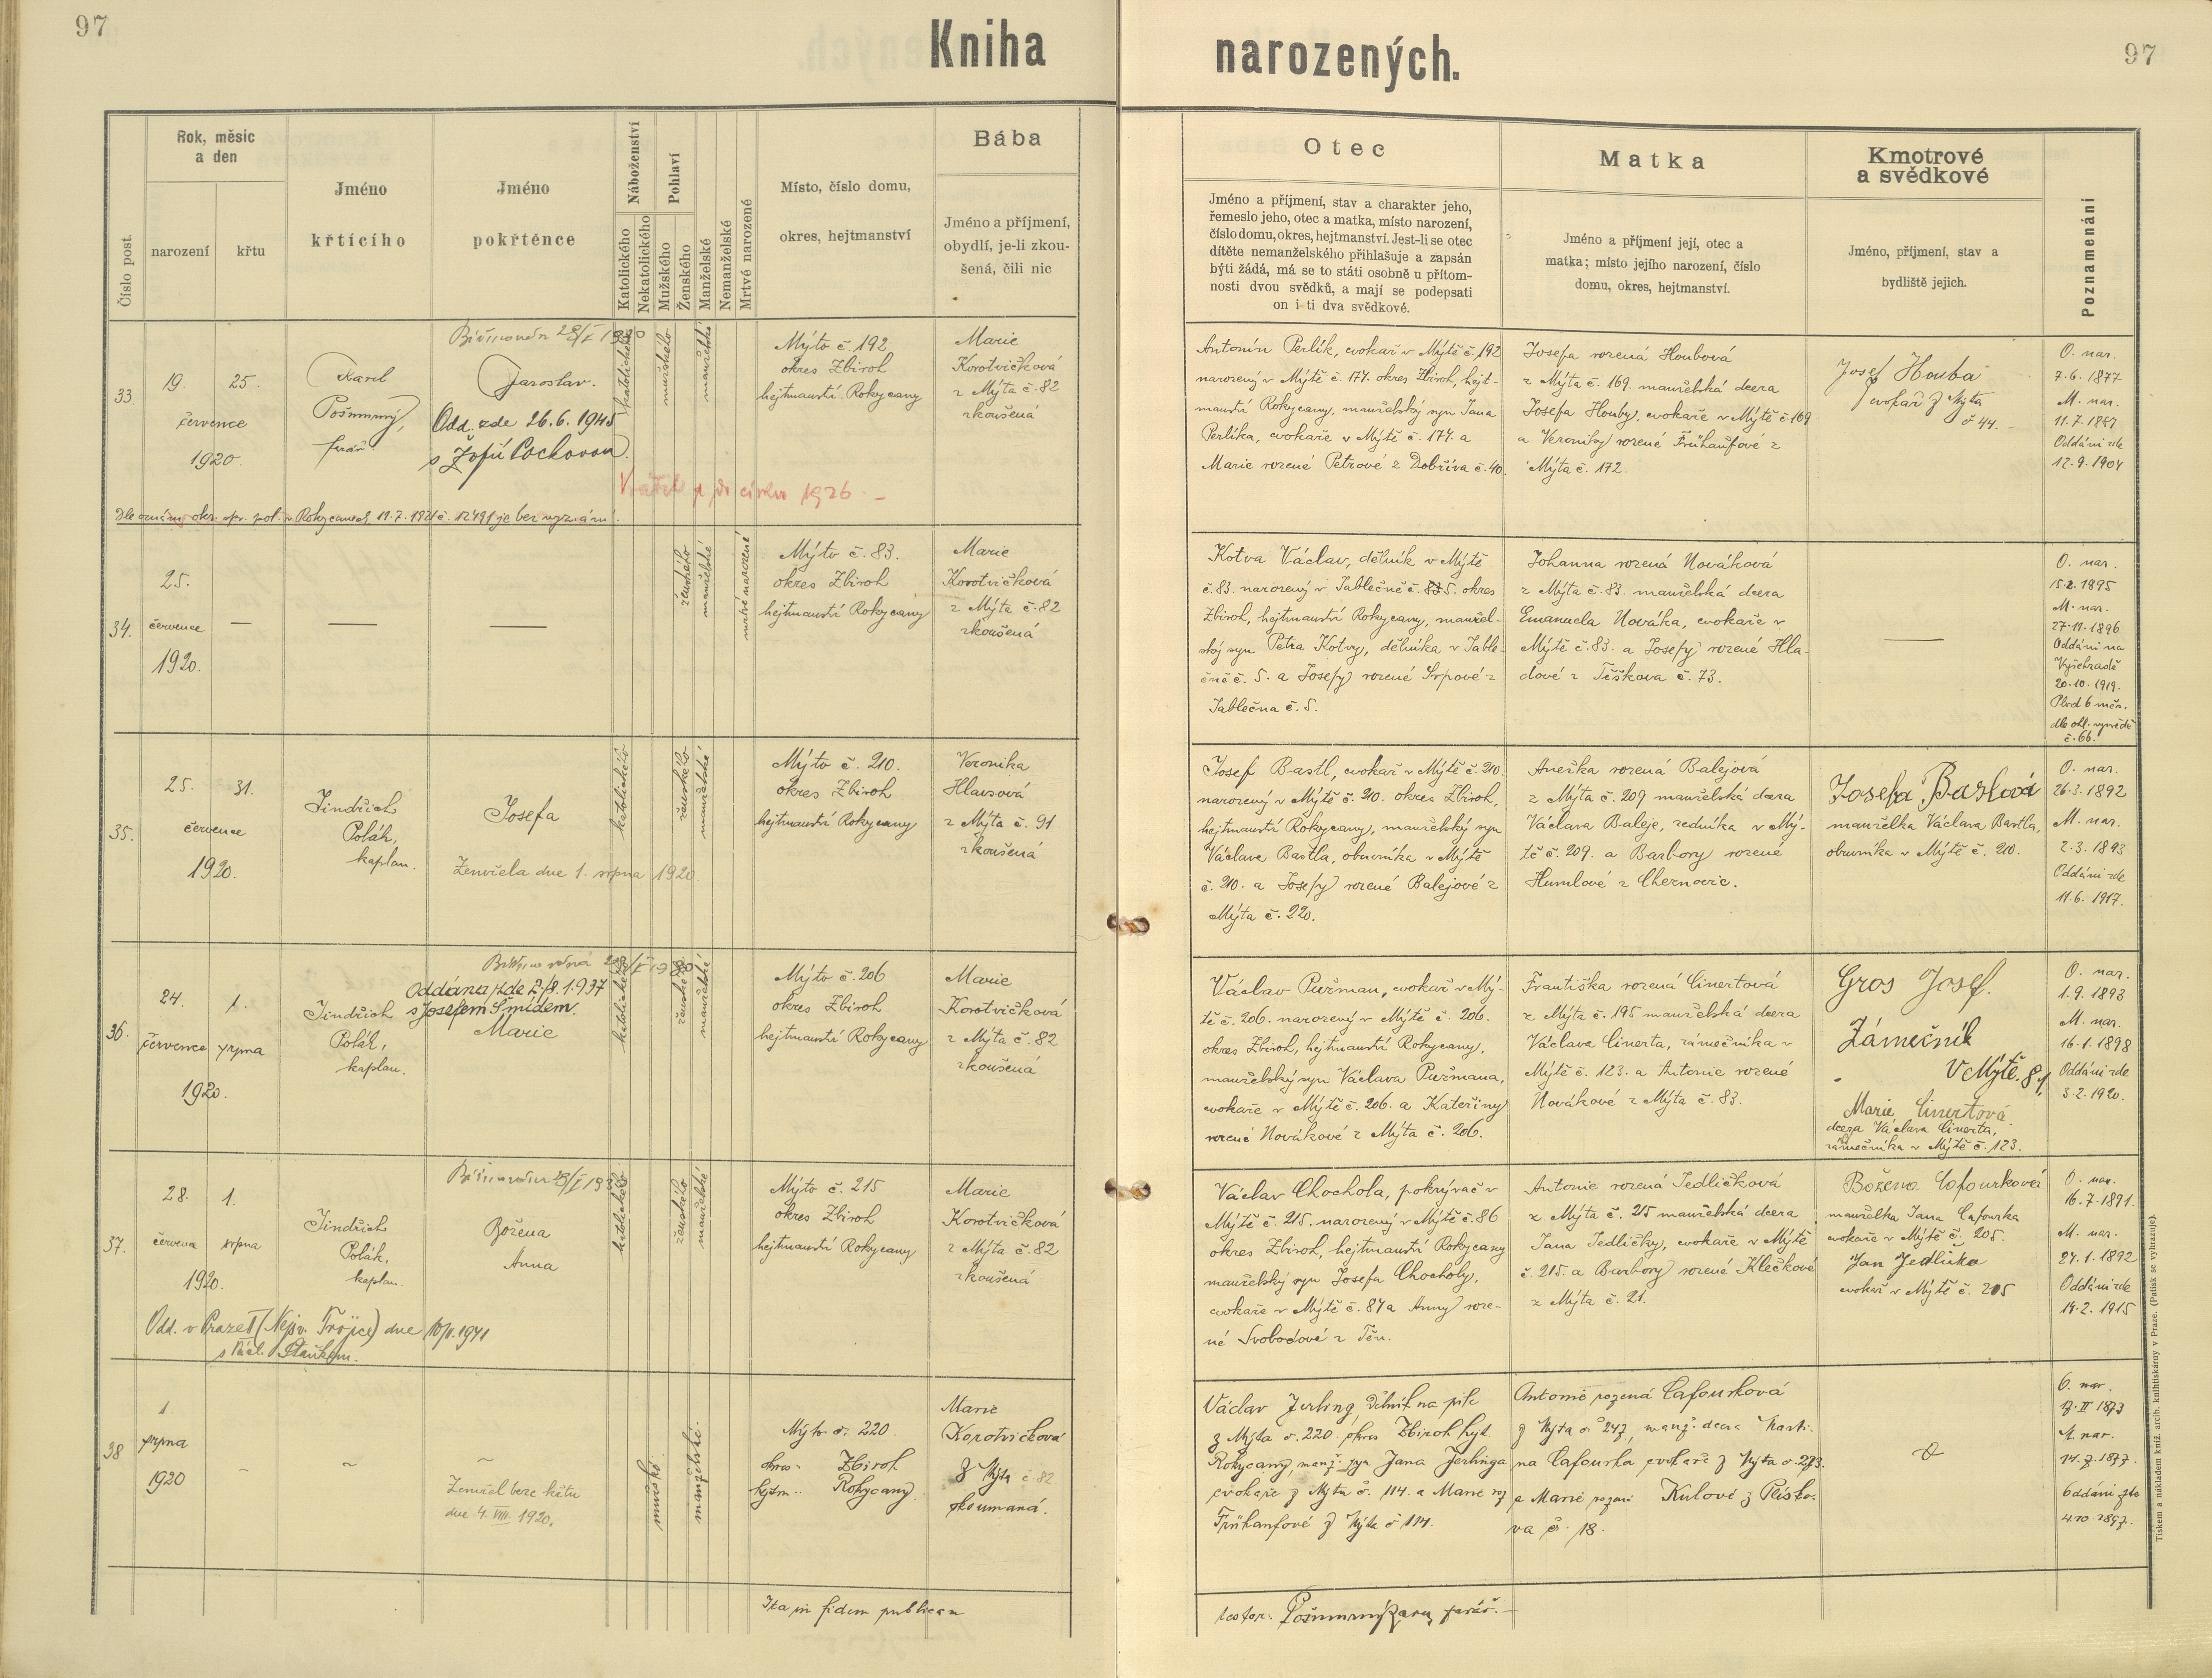 97
Kniha
narozených.
97
Číslo post.
Rok, měsíc
a den
narození
křtu
Jméno
křtícího
Jméno
pokřtěnce
Náboženství
Katolického
Nekatolického
Pohlaví
Mužského
Ženského
Manželské
Nemanželské
Mrtvé narozené
Místo, číslo domu,
okres, hejtmanství
Bába
Jméno a příjmení,
obydlí, je-li zkou-
šená, čili nic
Otec
Jméno a příjmení, stav a charakter jeho,
řemeslo jeho, otec a matka, místo narození,
číslo domu, okres, hejtmanství. Jest-li se otec
dítěte nemanželského přihlašuje a zapsán
býti žádá, má se to státi osobně u přítom-
nosti dvou svědků, a mají se podepsati
on i ti dva svědkové.
Matka
Jméno a příjmení její, otec a
matka; místo jejího narození, číslo
domu, okres, hejtmanství.
Kmotrové
a svědkové
Jméno, příjmení, stav a
bydliště jejich.
Poznamenání
33.
19.
25.
července
1920.
Karel
Pošmurný,
farář.
Jaroslav.
Odd. zde 26.6.1945
s Žofií Pochovou.
katolického
mužského
manželské
Mýto č. 192
okres Zbiroh
hejtmanství Rokycany
Marie
Korotvičková
z Mýta č. 82
zkoušená
Antonín Perlík, cvokař v Mýtě č. 192
narozený v Mýtě č. 174. okres Zbiroh, hejt-
manství Rokycany, manželský syn Jana
Perlíka, cvokaře v Mýtě č. 174. a
Marie rozené Petrové z Dobříva č. 40.
Josefa rozená Houbová
z Mýta č. 169. manželská dcera
Josefa Houby, cvokaře v Mýtě č. 169
a Veroniky rozené Frühaufové z
Mýta č. 172.
Josef Houba
cvokař z Mýta
č 44.
O. nar.
7.6.1877
M. nar.
Oddáni zde
12.9.1904
církve 1926.
v Rokycanech je bez vyznání.
34.
25.
července
1920.
ženského
manželské
mrtvě narozené
Mýto č. 83.
okres Zbiroh
hejtmanství Rokycany
Marie
Korotvičková
z Mýta č. 82
zkoušená
Kotva Václav, dělník v Mýtě
č. 83. narozený v Jablečně č. 5. okres
Zbiroh, hejtmanství Rokycany, manžel-
ský syn Petra Kotvy, dělníka v Jable-
čně č. 5. a Josefy rozené Srpové z
Jablečna č. 5.
Johanna rozená Nováková
z Mýta č. 83. manželská dcera
Emanuela Nováka, cvokaře v
Mýtě č. 83. a Josefy rozené Hla-
dové z Těškova č. 73.
O. nar.
15.2.1895
M. nar.
27.11.1896
Oddáni na
Vyšehradě
20.10.1919.
Plod 6 měs.
č. 66.
35.
25.
31.
července
1920.
Jindřich
Polák,
kaplan.
Josefa
Zemřela dne 1. srpna 1920.
katolického
ženského
manželské
Mýto č. 210.
okres Zbiroh
hejtmanství Rokycany
Veronika
Hlausová
z Mýta č. 91
zkoušená
Josef Bastl, cvokař v Mýtě č. 210.
narozený v Mýtě č. 210. okres Zbiroh,
hejtmanství Rokycany, manželský syn
Václava Bastla, obuvníka v Mýtě
č. 210. a Josefy rozené Balejové z
Mýta č. 220.
Anežka rozená Balejová
z Mýta č. 209 manželská dcera
Václava Baleje, zedníka v Mý-
tě č. 209. a Barbory rozené
Humlové z Chernovic.
Josefa Baslová
manželka Václava Bastla,
obuvníka v Mýtě č. 210.
O. nar.
26.3.1892
M. nar.
2.3.1893
Oddáni zde
11.6.1917.
36.
24.
1.
července
srpna
1920.
Jindřich
Polák,
kaplan.
Oddána zde
s Josefem Šmídem.
Marie
katolického
ženského
manželské
Mýto č. 206
okres Zbiroh
hejtmanství Rokycany
Marie
Korotvičková
z Mýta č. 82
zkoušená
Václav Pužman, cvokař v Mý-
tě č. 206. narozený v Mýtě č. 206.
okres Zbiroh, hejtmanství Rokycany,
manželský syn Václava Pužmana,
cvokaře v Mýtě č. 206. a Kateřiny
rozené Novákové z Mýta č. 206.
Františka rozená Cinertová
z Mýta č. 195 manželská dcera
Václava Cinerta, zámečníka v
Mýtě č. 123. a Antonie rozené
Novákové z Mýta č. 83.
Gros Josef.
Zámečník
V Mýtě. 81,
Marie Cinertová
dcera Václava Cinerta,
zámečníka v Mýtě č. 123.
O. nar.
1.9.1893
M. nar.
16.1.1898
Oddáni zde
3.2.1920.
37.
28.
1.
července
srpna
1920.
Jindřich
Polák,
kaplan.
Božena
Anna
katolického
ženského
manželské
Mýto č. 215
okres Zbiroh
hejtmanství Rokycany
Marie
Korotvičková
z Mýta č. 82
zkoušená
Václav Chochola, pokrývač v
Mýtě č. 215. narozený v Mýtě č. 86
okres Zbiroh, hejtmanství Rokycany
manželský syn Josefa Chocholy,
cvokaře v Mýtě č. 87 a Anny roze-
né Svobodové z Těn.
Antonie rozená Jedličková
z Mýta č. 215 manželská dcera
Jana Jedličky, cvokaře v Mýtě
č. 215. a Barbory rozené Klečkové
z Mýta č. 21.
Božena Cafourková
manželka Jana Cafourka
cvokaře v Mýtě č. 205.
Jan Jedlička
cvokař v Mýtě č. 205
O. nar.
16.7.1891.
M. nar.
27.1.1892
Oddáni zde
14.2.1915
Odd. v Praze II (Nejsv. Trojice) dne
38
1.
srpna
1920
Zemřel beze křtu
dne 4. VIII. 1920.
mužské
manželské.
Mýto č. 220
okres Zbiroh
hejtm. Rokycany.
Marie
Korotvičková
z Mýta č. 82
zkoumaná.
Václav Jerling, dělník na pile
z Mýta č. 220 okres Zbiroh hejt
Rokycany, manž. syn Jana Jerlinga
cvokaře z Mýta č. 114. a Marie roz
Frühaufové z Mýta č 114.
Antonie rozená Cafourková
z Mýta č. 247, manž. dcera Marti-
na Cafourka cvokaře z Mýta č. 273.
a Marie rozené Kulové z Plísko-
va č. 18.
O. nar.
M. nar.
Oddáni zde
4.10.1897.
Ita in fidem publicam
testor: Pošmurný Karel, farář.
Tiskem a nákladem kníž. arcib. knihtiskárny v Praze. (Patisk se vyhrazuje).